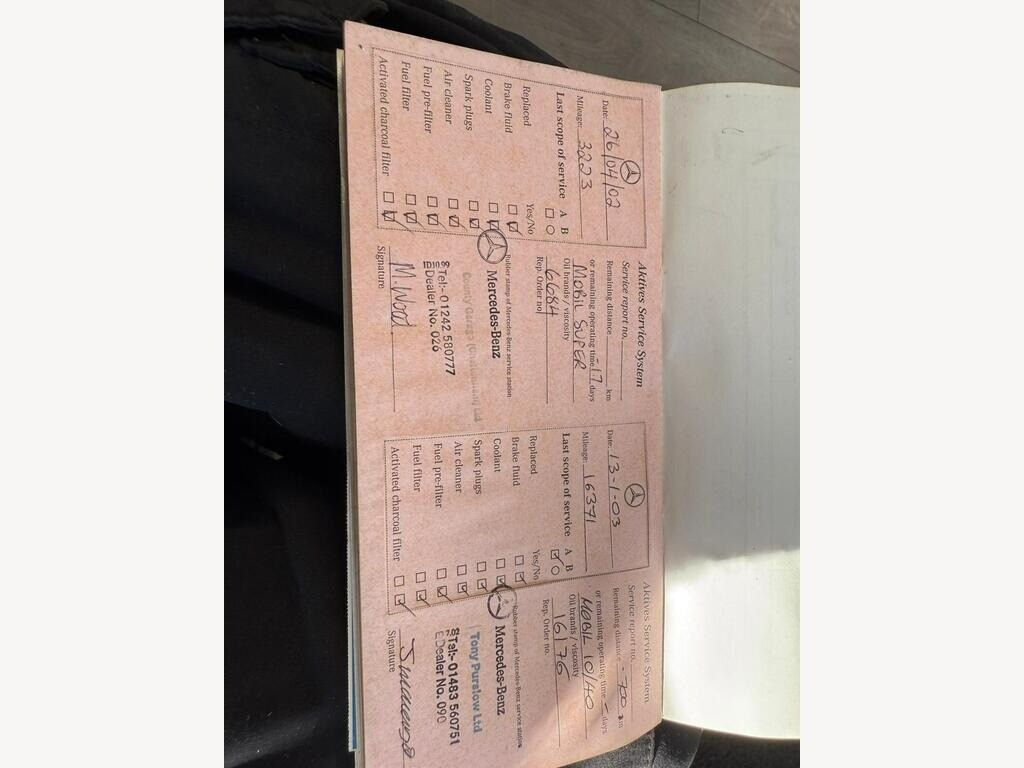 Date: 26/04/02
Mileage: 3223
Last scope of service A B
Replaced Yes/No
Brake fluid
Coolant
Spark plugs
Air cleaner
Fuel pre-filter
Fuel filter
Activated charcoal filter
Aktives Service System
Service report no.
Remaining distance km
or remaining operating time -17 days
MOBIL SUPER
Oil brands / viscosity
6684
Rep. Order no
Rubber stamp of Mercedes-Benz service station
Mercedes-Benz
County Garage (Cheltenham) Ltd
Tel:- 01242 580777
Dealer No. 026
M. Wood
Signature
Date: 13-1-03
Mileage: 16371
Last scope of service A B
Replaced Yes/No
Brake fluid
Coolant
Spark plugs
Air cleaner
Fuel pre-filter
Fuel filter
Activated charcoal filter
Aktives Service System
Service report no.
Remaining distance -700 km
or remaining operating time days
MOBIL 10/40
Oil brands / viscosity
16176
Rep. Order no.
Rubber stamp of Mercedes-Benz service station
Mercedes-Benz
Tony Purslow Ltd
Tel:- 01483 560751
Dealer No. 090
Signature